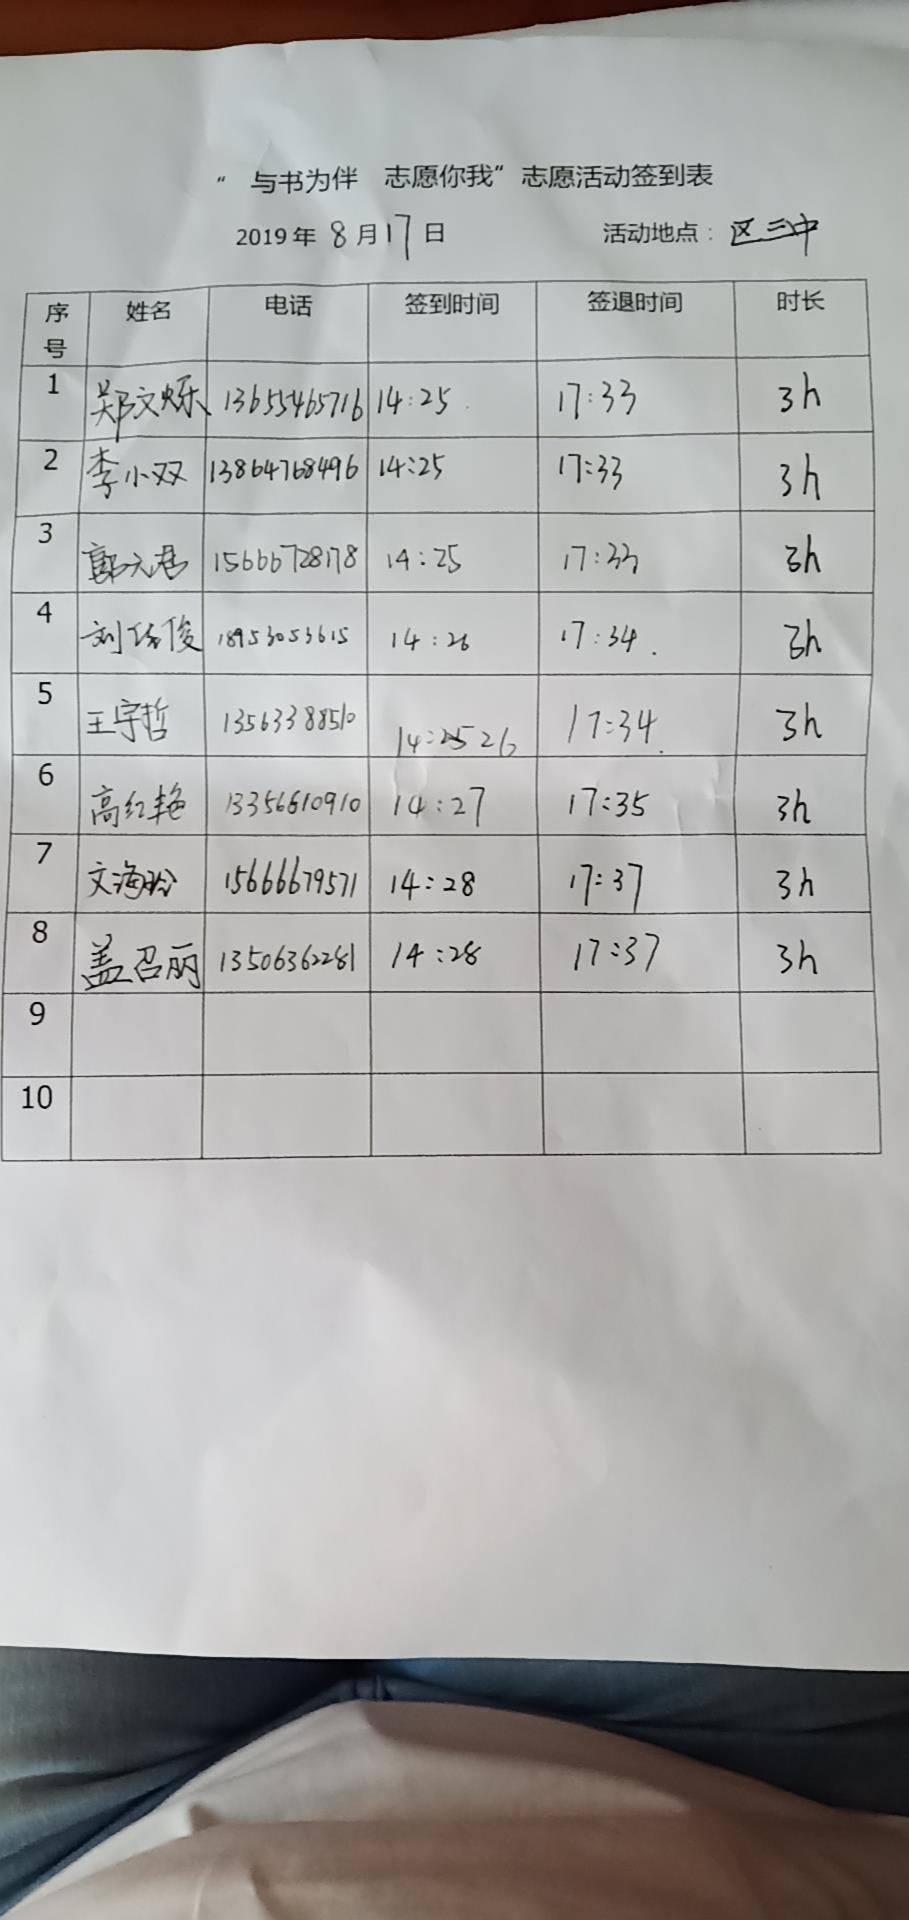 “ 与书为伴 志愿你我”志愿活动签到表
2019年 8月17日 活动地点：区三中
序号 姓名 电话 签到时间 签退时间 时长
1 郑文烁 13655465716 14:25 17:33 3h
2 李小双 13864768496 14:25 17:33 3h
3 郭元君 15666728178 14:25 17:33 3h
4 18953053615 14:26 17:34 3h
5 王宇哲 13563388510 14:26 17:34 3h
6 高红艳 13356610910 14:27 17:35 3h
7 文海玲 15666679571 14:28 17:37 3h
8 盖召丽 13506362281 14:28 17:37 3h
9
10